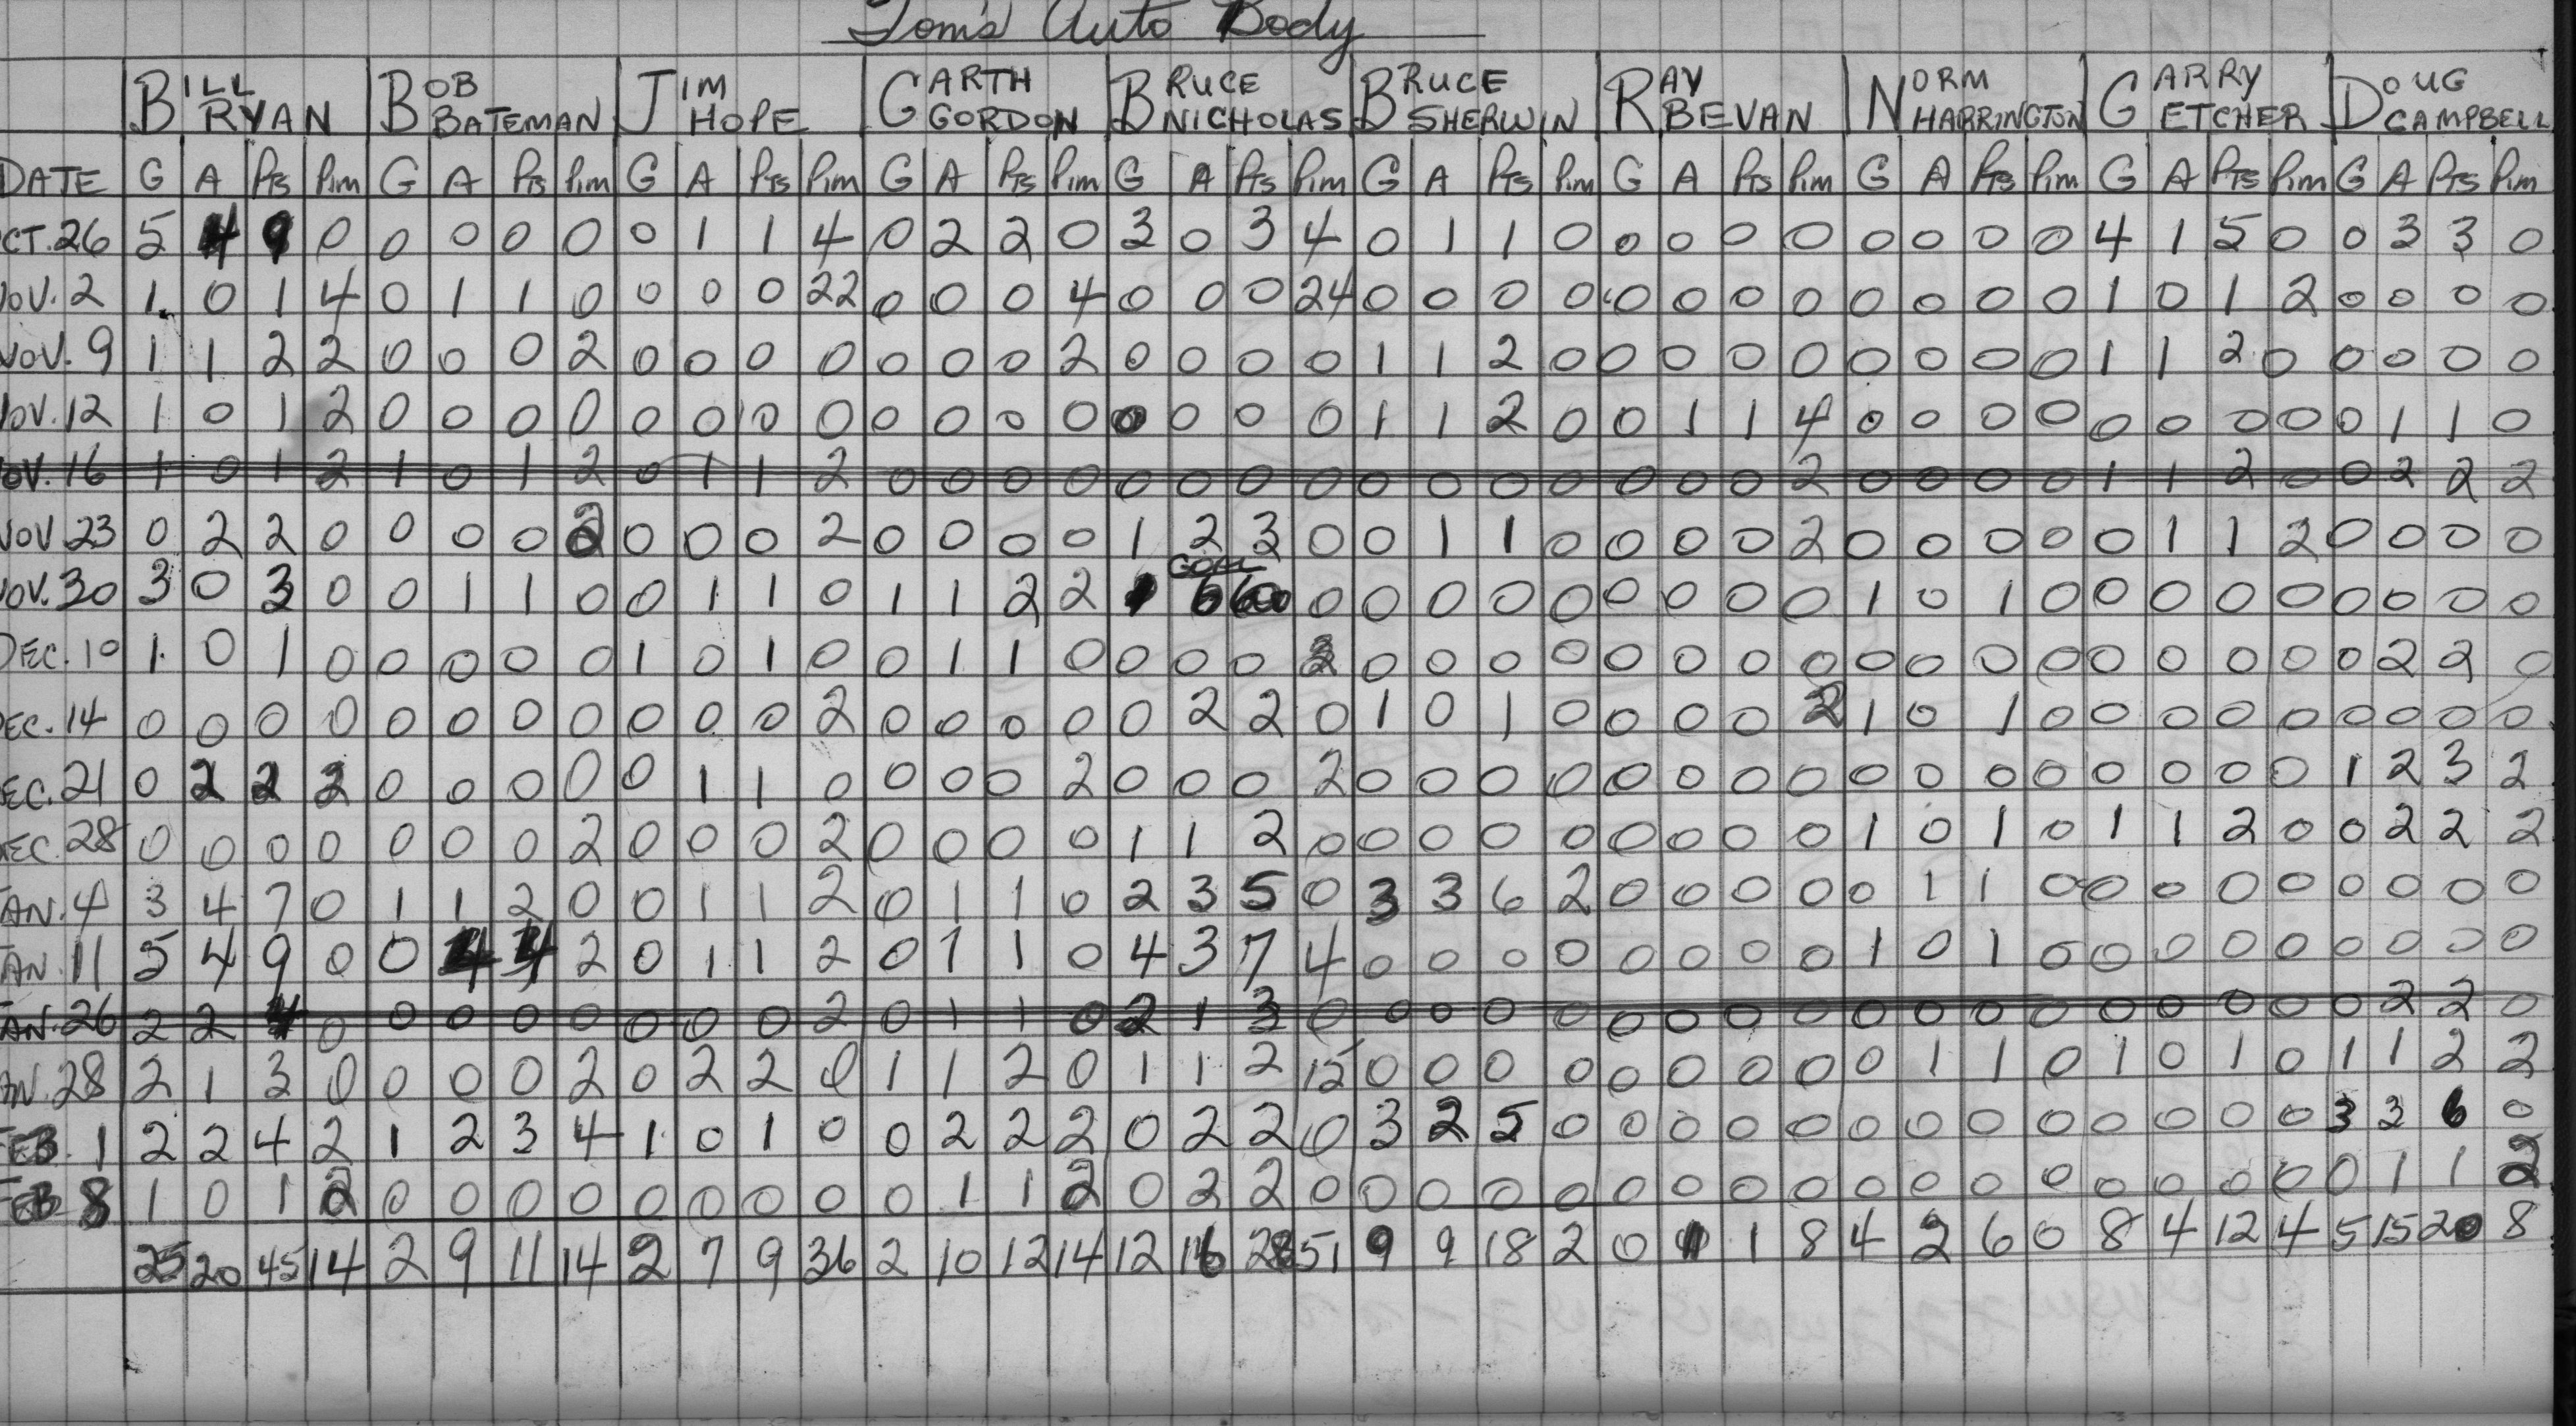 Tom's Auto Body
BILL RYAN BOB BATEMAN JIM HOPE GARTH GORDON BRUCE NICHOLAS BRUCE SHERWIN RAY BEVAN NORM HARRINGTON GARRY ETCHER DOUG CAMPBELL
DATE G A Pts Pim G A Pts Pim G A Pts Pim G A Pts Pim G A Pts Pim G A Pts Pim G A Pts Pim G A Pts Pim G A Pts Pim G A Pts Pim
CT.26 5 4 9 0 0 0 0 0 0 1 1 4 0 2 2 0 3 0 3 4 0 1 1 0 0 0 0 0 0 0 0 0 4 1 5 0 0 3 3 0
OV.2 1 0 1 4 0 1 1 0 0 0 0 22 0 0 0 4 0 0 0 24 0 0 0 0 0 0 0 0 0 0 0 0 1 0 1 2 0 0 0 0
NOV.9 1 1 2 2 0 0 0 2 0 0 0 0 0 0 0 2 0 0 0 0 1 1 2 0 0 0 0 0 0 0 0 0 1 1 2 0 0 0 0 0
OV.12 1 0 1 2 0 0 0 0 0 0 0 0 0 0 0 0 0 0 0 0 1 1 2 0 0 1 1 4 0 0 0 0 0 0 0 0 0 1 1 0
OV.16 1 0 1 2 1 0 1 2 0 1 1 2 0 0 0 0 0 0 0 0 0 0 0 0 0 0 0 2 0 0 0 0 1 1 2 0 0 2 2 2
NOV 23 0 2 2 0 0 0 0 2 0 0 0 2 0 0 0 0 1 2 3 0 0 1 1 0 0 0 0 2 0 0 0 0 0 1 1 2 0 0 0 0
GOAL
OV.30 3 0 3 0 0 1 1 0 0 1 1 0 1 1 2 2 0 0 0 0 0 0 0 0 0 1 0 1 0 0 0 0 0 0 0 0 0
DEC.10 1 0 1 0 0 0 0 0 1 0 1 0 0 1 1 0 0 0 0 2 0 0 0 0 0 0 0 0 0 0 0 0 0 0 0 0 0 2 2 0
EC.14 0 0 0 0 0 0 0 0 0 0 0 2 0 0 0 0 0 2 2 0 1 0 1 0 0 0 0 2 1 0 1 0 0 0 0 0 0 0 0 0
EC.21 0 2 2 2 0 0 0 0 0 1 1 0 0 0 0 2 0 0 0 2 0 0 0 0 0 0 0 0 0 0 0 0 0 0 0 0 1 2 3 2
EC.28 0 0 0 0 0 0 0 2 0 0 0 2 0 0 0 0 1 1 2 0 0 0 0 0 0 0 0 0 1 0 1 0 1 1 2 0 0 2 2 2
AN.4 3 4 7 0 1 1 2 0 0 1 1 2 0 1 1 0 2 3 5 0 3 3 6 2 0 0 0 0 0 1 1 0 0 0 0 0 0 0 0 0
AN.11 5 4 9 0 0 4 4 2 0 1 1 2 0 1 1 0 4 3 7 4 0 0 0 0 0 0 0 0 1 0 1 0 0 0 0 0 0 0 0 0
AN.26 2 2 4 0 0 0 0 0 0 0 0 2 0 1 1 0 2 1 3 0 0 0 0 0 0 0 0 0 0 0 0 0 0 0 0 0 0 2 2 0
AN.28 2 1 3 0 0 0 0 2 0 2 2 0 1 1 2 0 1 1 2 15 0 0 0 0 0 0 0 0 0 1 1 0 1 0 1 0 1 1 2 2
EB.1 2 2 4 2 1 2 3 4 1 0 1 0 0 2 2 2 0 2 2 0 3 2 5 0 0 0 0 0 0 0 0 0 0 0 0 0 3 3 6 0
EB 8 1 0 1 2 0 0 0 0 0 0 0 0 0 1 1 2 0 2 2 0 0 0 0 0 0 0 0 0 0 0 0 0 0 0 0 0 0 1 1 2
25 20 45 14 2 9 11 14 2 7 9 36 2 10 12 14 12 16 28 51 9 9 18 2 0 1 1 8 4 2 6 0 8 4 12 4 5 15 20 8